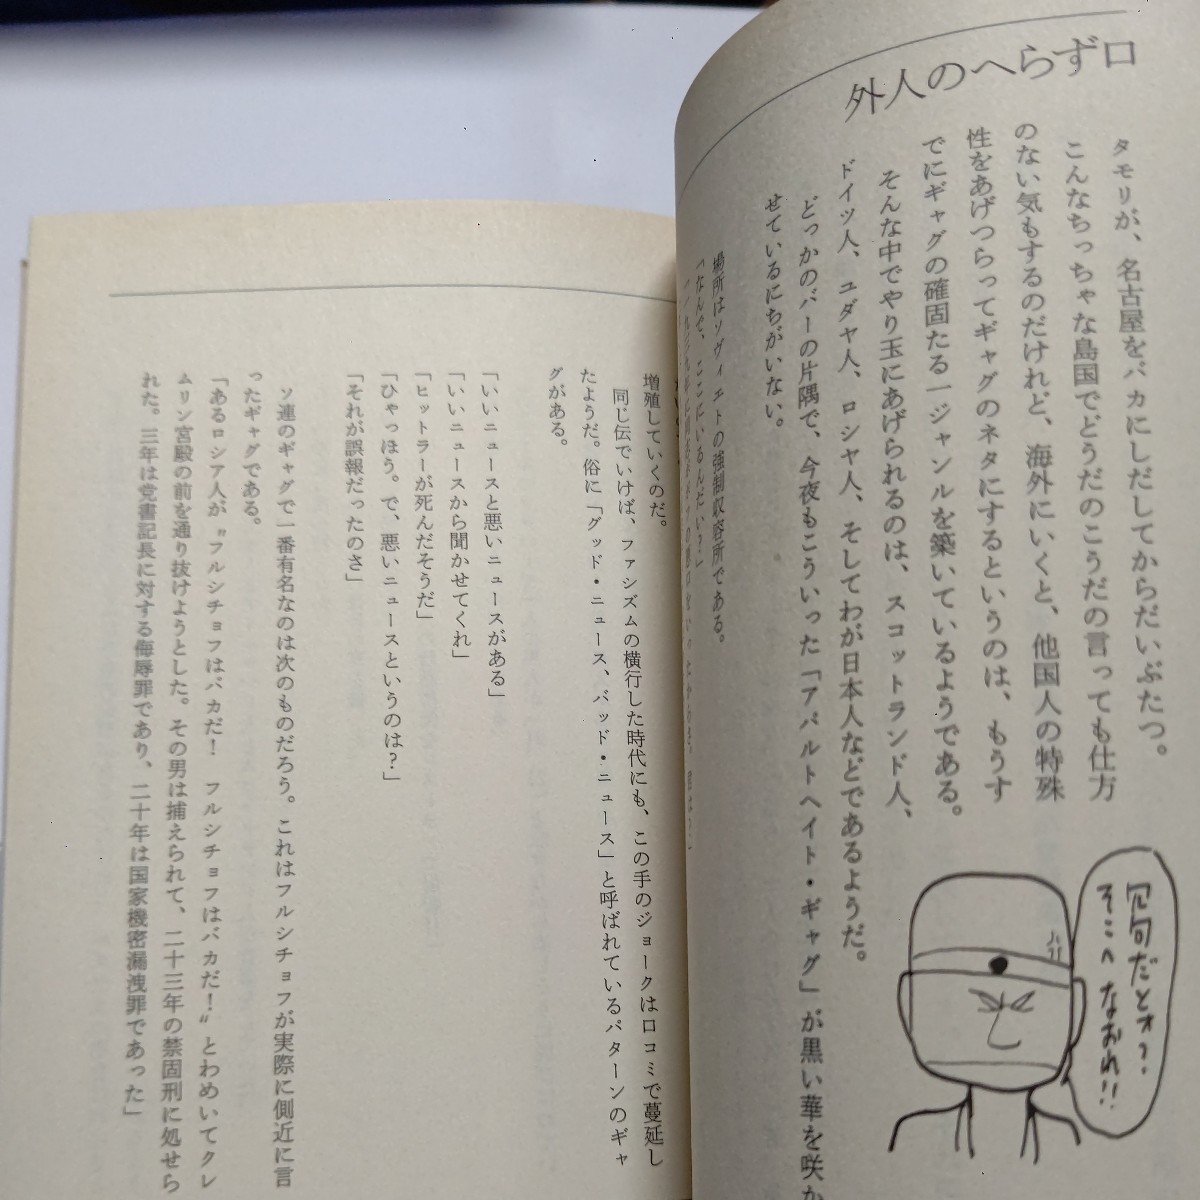 外人のへらず口
タモリが、名古屋をバカにしだしてからだいぶたつ。
こんなちっちゃな島国でどうだのこうだの言っても仕方
のない気もするのだけれど、海外にいくと、他国人の特殊
性をあげつらってギャグのネタにするというのは、もうす
でにギャグの確固たる一ジャンルを築いているようである。
そんな中でやり玉にあげられるのは、スコットランド人、
ドイツ人、ユダヤ人、ロシヤ人、そしてわが日本人などであるようだ。
どっかのバーの片隅で、今夜もこういった「アパルトヘイト・ギャグ」が黒い華を咲か
せているにちがいない。
場所はソヴィエトの強制収容所である。
「なんで、ここにいるんだい？」
冗句だとォ？
そこへなおれ!!
増殖していくのだ。
同じ伝でいけば、ファシズムの横行した時代にも、この手のジョークは口コミで蔓延し
たようだ。俗に「グッド・ニュース、バッド・ニュース」と呼ばれているパターンのギャ
グがある。
「いいニュースと悪いニュースがある」
「いいニュースから聞かせてくれ」
「ヒットラーが死んだそうだ」
「ひゃっほう。で、悪いニュースというのは？」
「それが誤報だったのさ」
ソ連のギャグで一番有名なのは次のものだろう。これはフルシチョフが実際に側近に言
ったギャグである。
「あるロシア人が〝フルシチョフはバカだ！　フルシチョフはバカだ！〟とわめいてクレ
ムリン宮殿の前を通り抜けようとした。その男は捕えられて、二十三年の禁固刑に処せら
れた。三年は党書記長に対する侮辱罪であり、二十年は国家機密漏洩罪であった」